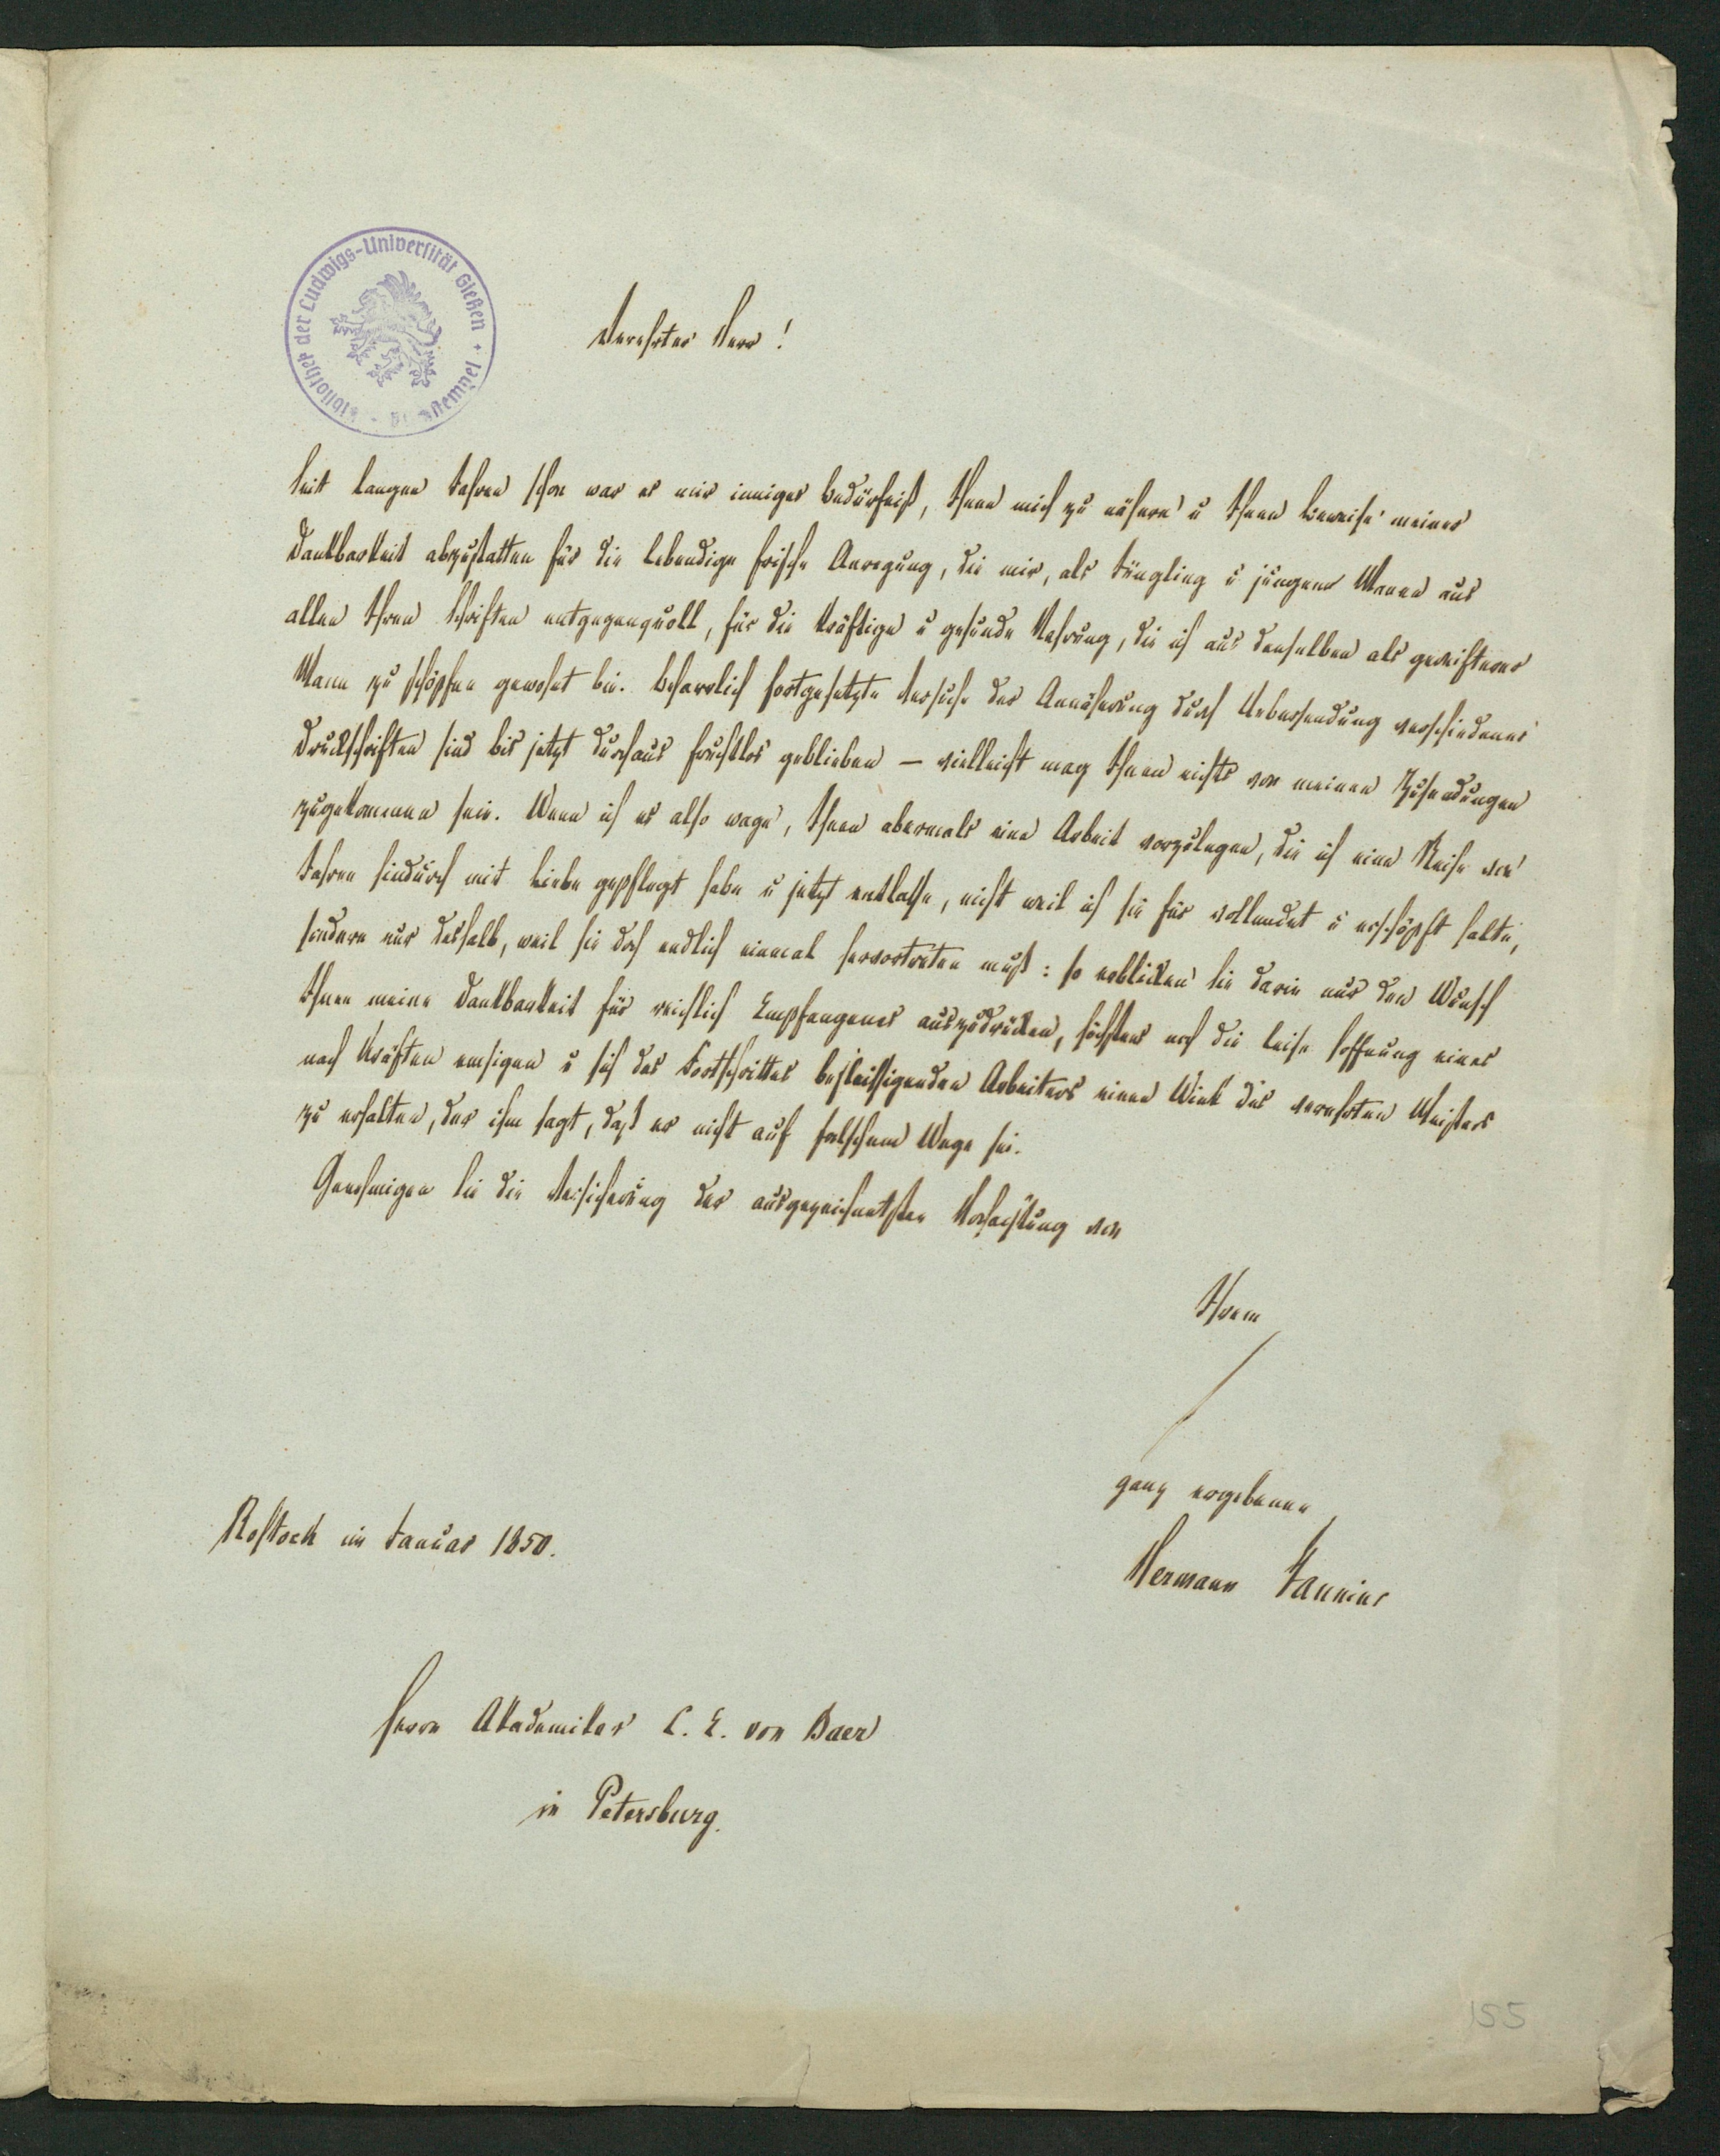 Bibliothek der Ludwigs-Universität Gießen
Verehrter Herr!
Seit langen Jahren schon war es mir inniges Bedürfniß, Ihnen mich zu nähern u Ihnen Beweise meiner
Dankbarkeit abzustatten für die lebendige frische Anregung, die mir, als Jüngling u jungem Mann aus
allen Ihren Schriften entgegenquoll, für die kräftige u gesunde Nahrung, die ich aus denselben als gereifterer
Mann zu schöpfen gewohnt bin. Beharrlich fortgesetzte Versuche der Annäherung durch Uebersendung verschiedener
Druckschriften sind bis jetzt durchaus fruchtlos geblieben — vielleicht mag Ihnen nichts von meinen Zusendungen
zugekommen sein. Wenn ich es also wage, Ihnen abermals eine Arbeit vorzulegen, die ich eine Reihe von
Jahren hindurch mit Liebe gepflegt habe u jetzt entlasse, nicht weil ich sie für vollendet u erschöpft halte,
sondern nur deshalb, weil sie doch endlich einmal hervortreten muß: so erblicken Sie darin nur den Wunsch
Ihnen meine Dankbarkeit für reichlich Empfangenes auszudrücken, höchstens noch die leise Hoffnung eines
nach Kräften emsigen u sich des Fortschrittes befleissigenden Arbeiters einen Wink des verehrten Meisters
zu erhalten, der ihm sagt, daß er nicht auf falschem Wege sei.
Genehmigen Sie die Versicherung der ausgezeichnetsten Hochachtung von
Ihrem
ganz ergebenen
Rostock im Januar 1850.
Hermann Stannius
Herrn Akademiker C. E. von Baer
in Petersburg.
155